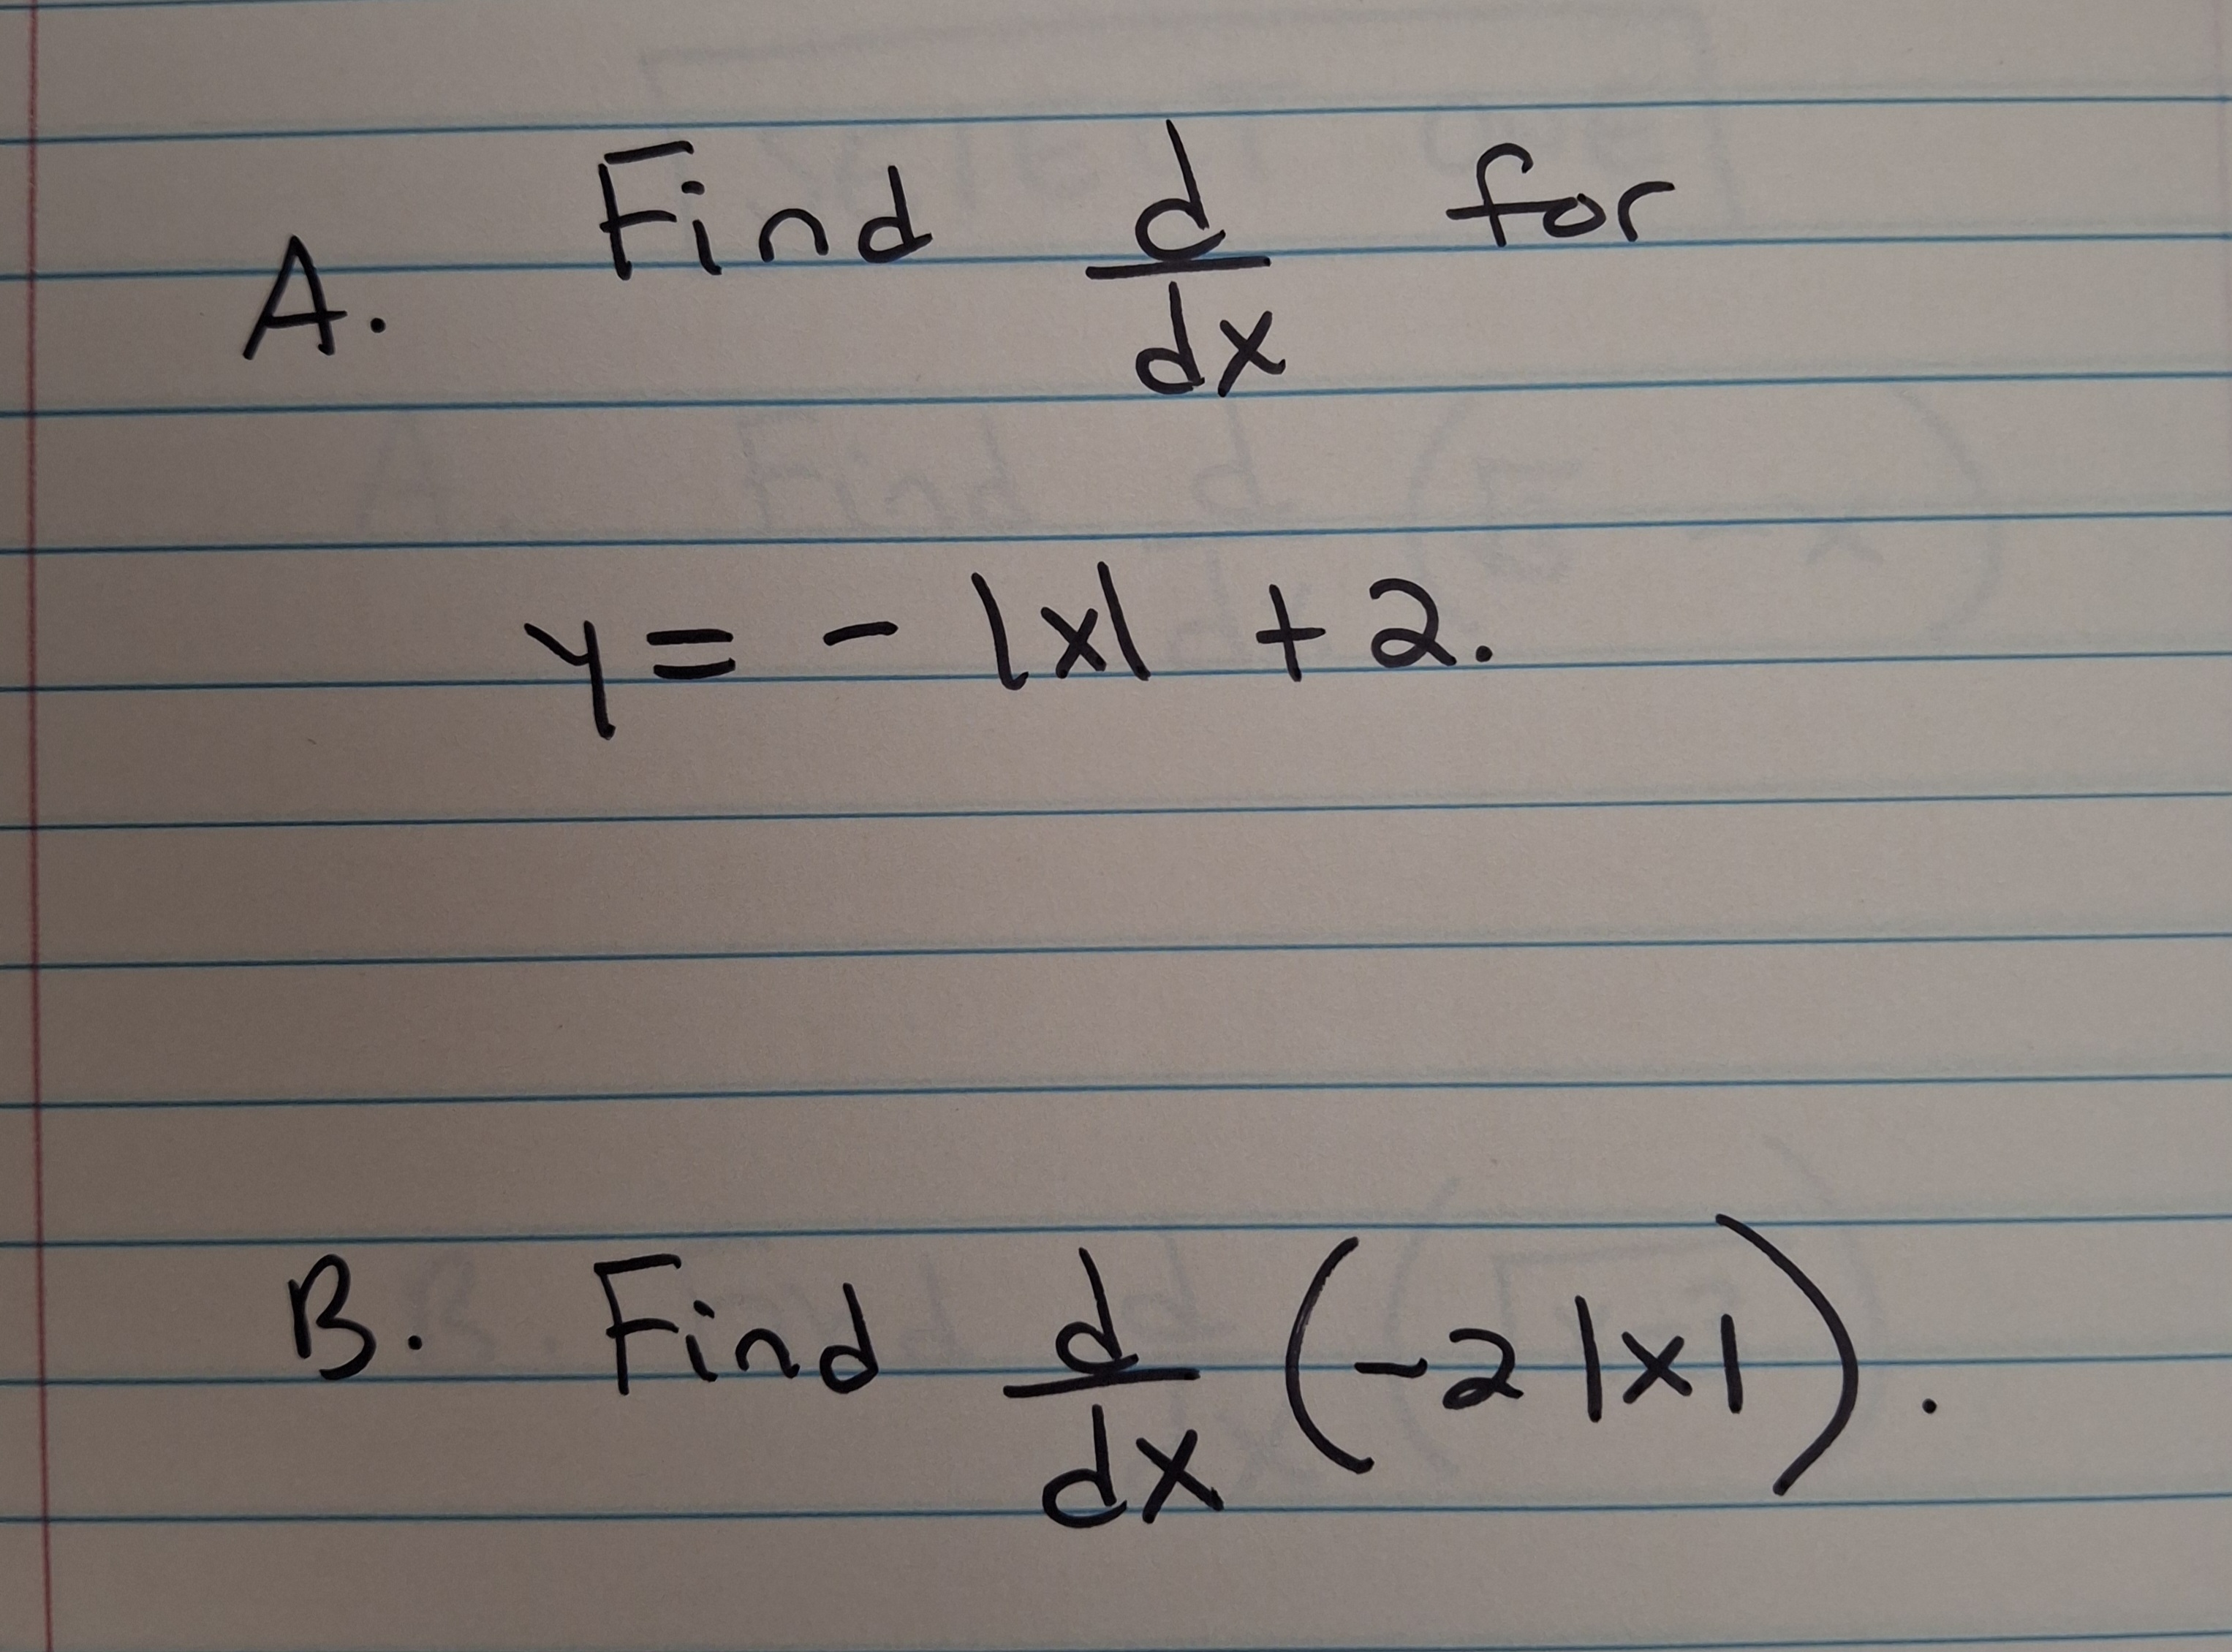 A. Find d/dx for
y = - |x| + 2.
B. Find d/dx (-2|x|).